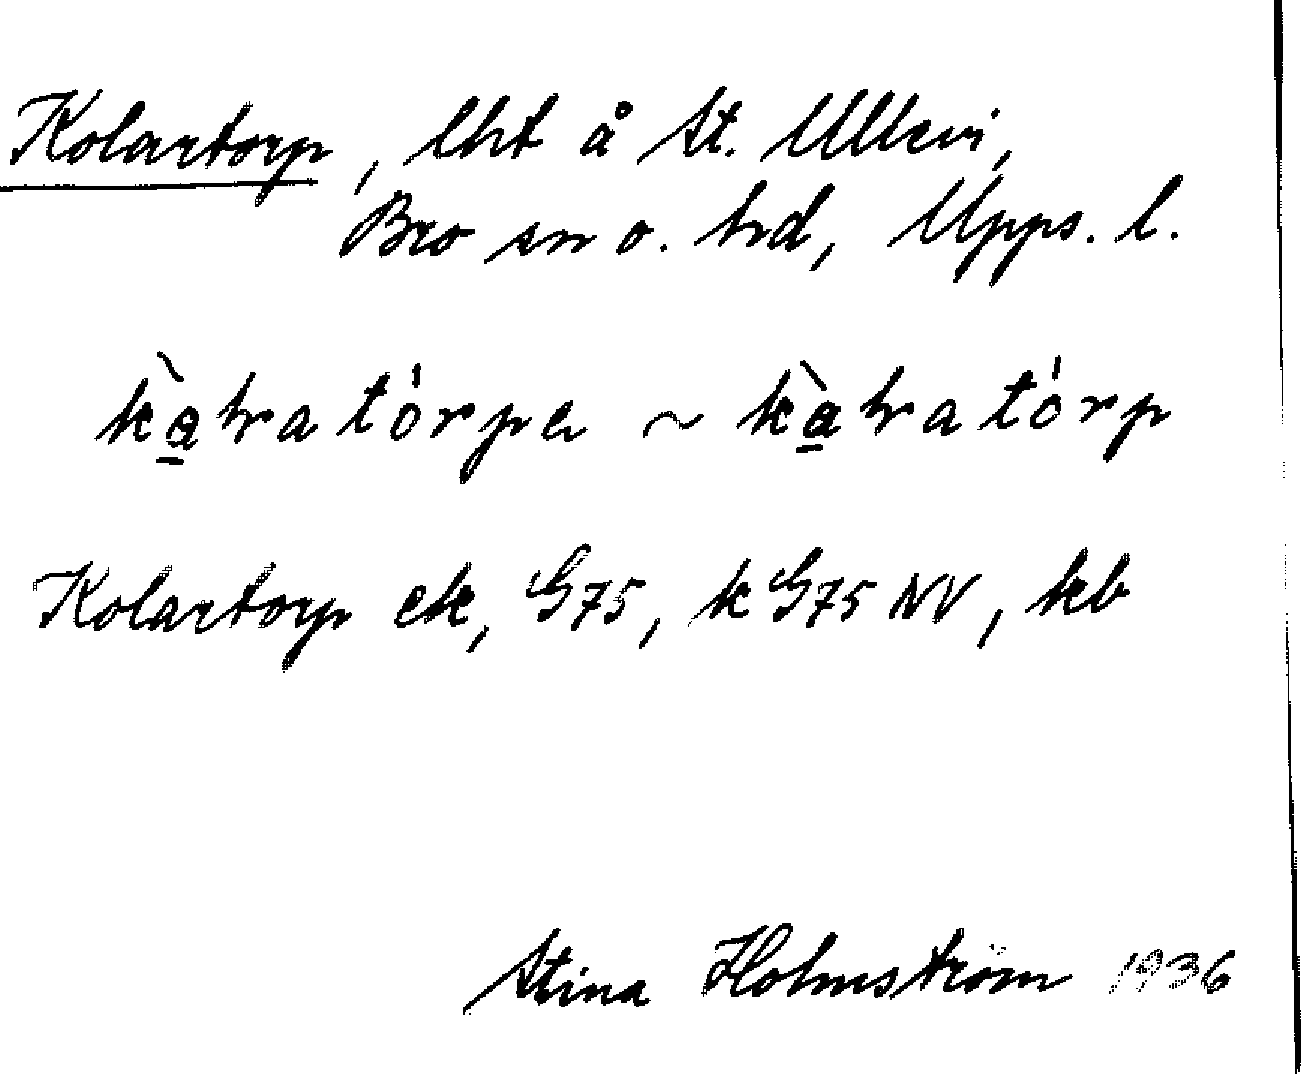 Kolartorp, lht å St. Ullevi,
Bro sn o. hd, Upps. l.
kàlratórpe ~ kàlratórp
Kolartorp ek, G75, k G75 NV, kb
Stina Holmström 1936